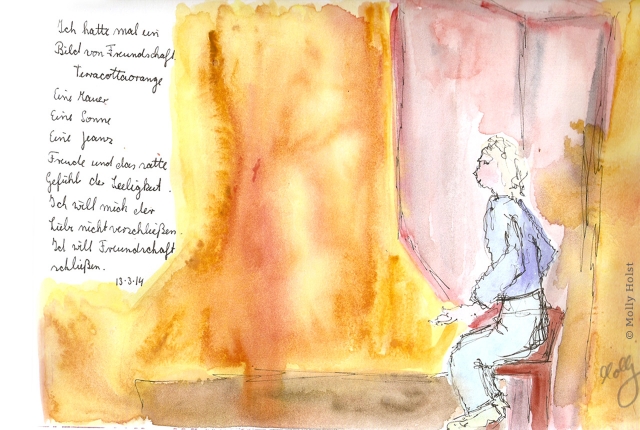 Ich hatte mal ein
Bild von Freundschaft.
Terracottaorange
Eine Mauer
Eine Sonne
Eine Jeans
Freude und das satte
Gefühl der Seeligkeit.
Ich will mich der
Liebe nicht verschließen.
Ich will Freundschaft
schließen.
13·3·14
© Molly Holst
Molly